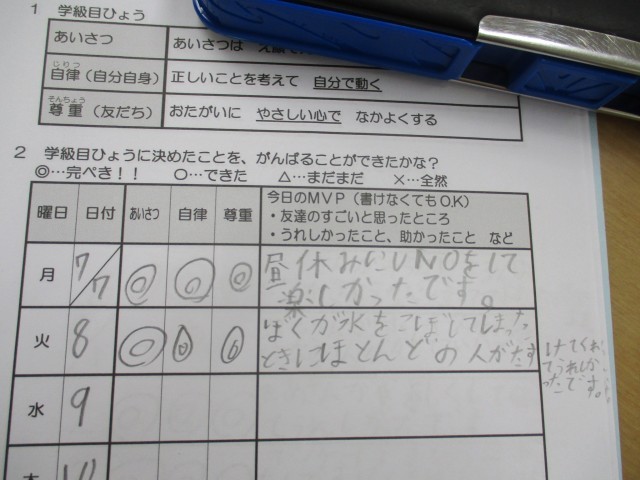 1 学級目ひょう
あいさつ
あいさつは
じりつ
自律（自分自身）
正しいことを考えて 自分で動く
そんちょう
尊重（友だち）
おたがいに やさしい心で なかよくする
2 学級目ひょうに決めたことを、がんばることができたかな？
◎…完ぺき！！ ○…できた △…まだまだ ×…全然
曜日 日付 あいさつ 自律 尊重
今日のMVP（書けなくてもO.K）
・友達のすごいと思ったところ
・うれしかったこと、助かったこと など
月 7/7 ◎ ◎ ◎
昼休みにUNOをして
楽しかったです。
火 8 ◎ ◎ ◎
ぼくが水をこぼしてしまった
ときにほとんどの人がたす
けてくれ
てうれしか
ったです。
水 9